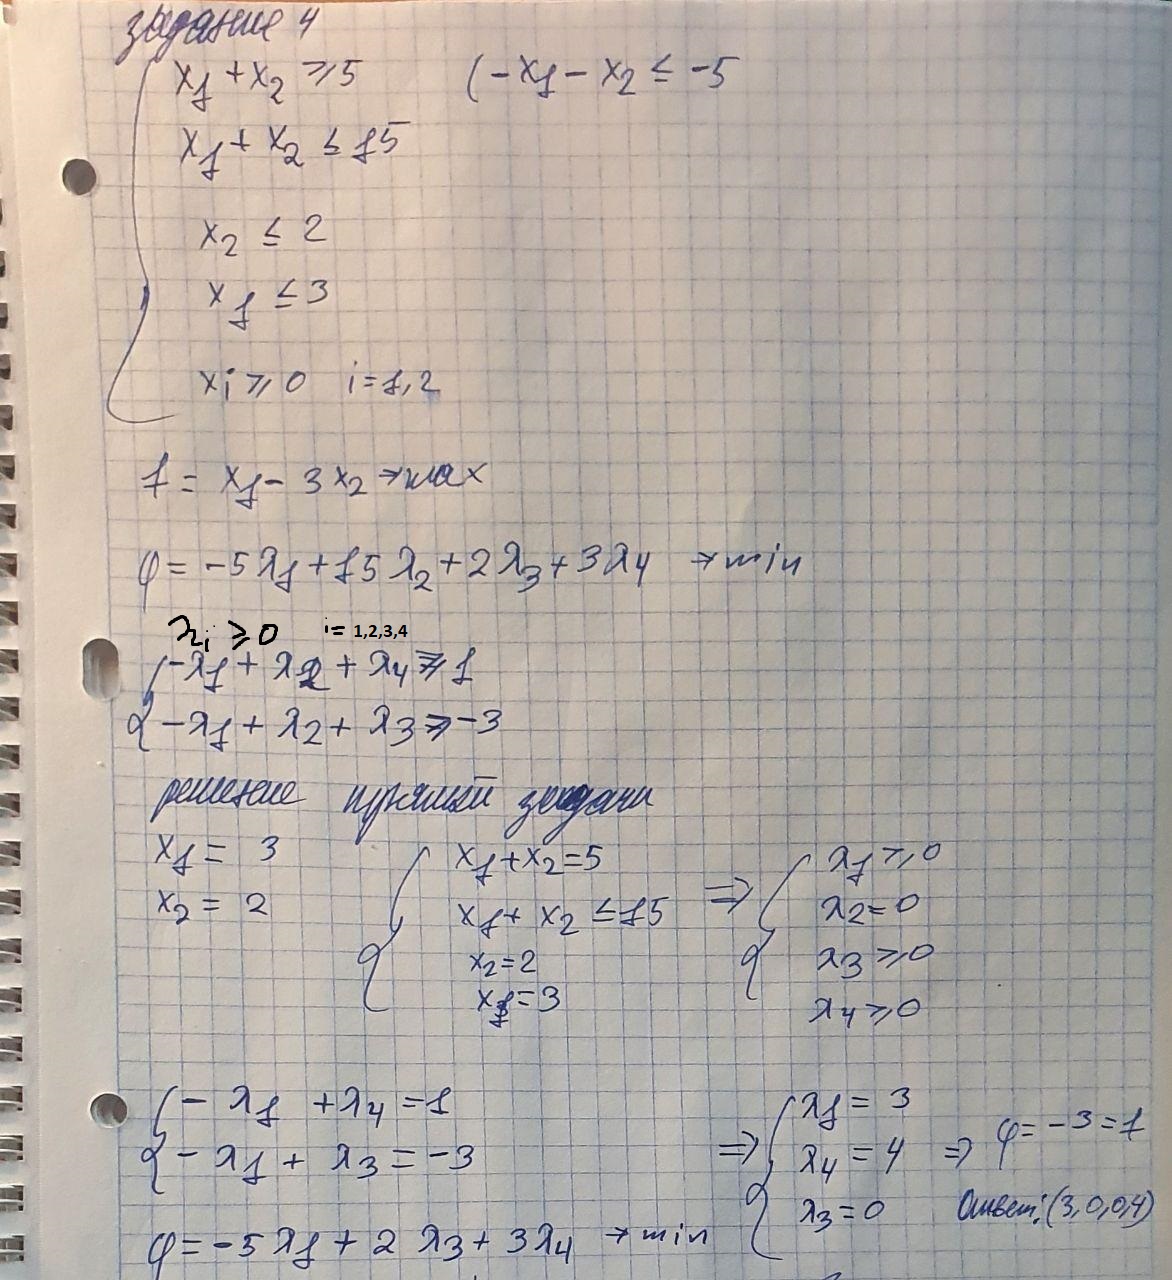 задание 4
x₁ + x₂ ≥ 5 (-x₁ - x₂ ≤ -5
x₁ + x₂ ≤ 15
x₂ ≤ 2
x₁ ≤ 3
xi ≥ 0 i = 1,2
f = x₁ - 3x₂ → max
φ = -5λ₁ + 15λ₂ + 2λ₃ + 3λ₄ → min
λi ≥ 0 i = 1,2,3,4
-λ₁ + λ₂ + λ₄ ≥ 1
-λ₁ + λ₂ + λ₃ ≥ -3
решение прямой задачи
x₁ = 3
x₂ = 2
x₁ + x₂ = 5
x₁ + x₂ ≤ 15
x₂ = 2
x₁ = 3
⇒
λ₁ ≥ 0
λ₂ = 0
λ₃ ≥ 0
λ₄ ≥ 0
-λ₁ + λ₄ = 1
-λ₁ + λ₃ = -3
⇒
λ₁ = 3
λ₄ = 4
λ₃ = 0
⇒ φ = -3 = 1
Ответ: (3,0,0,4)
φ = -5λ₁ + 2λ₃ + 3λ₄ → min